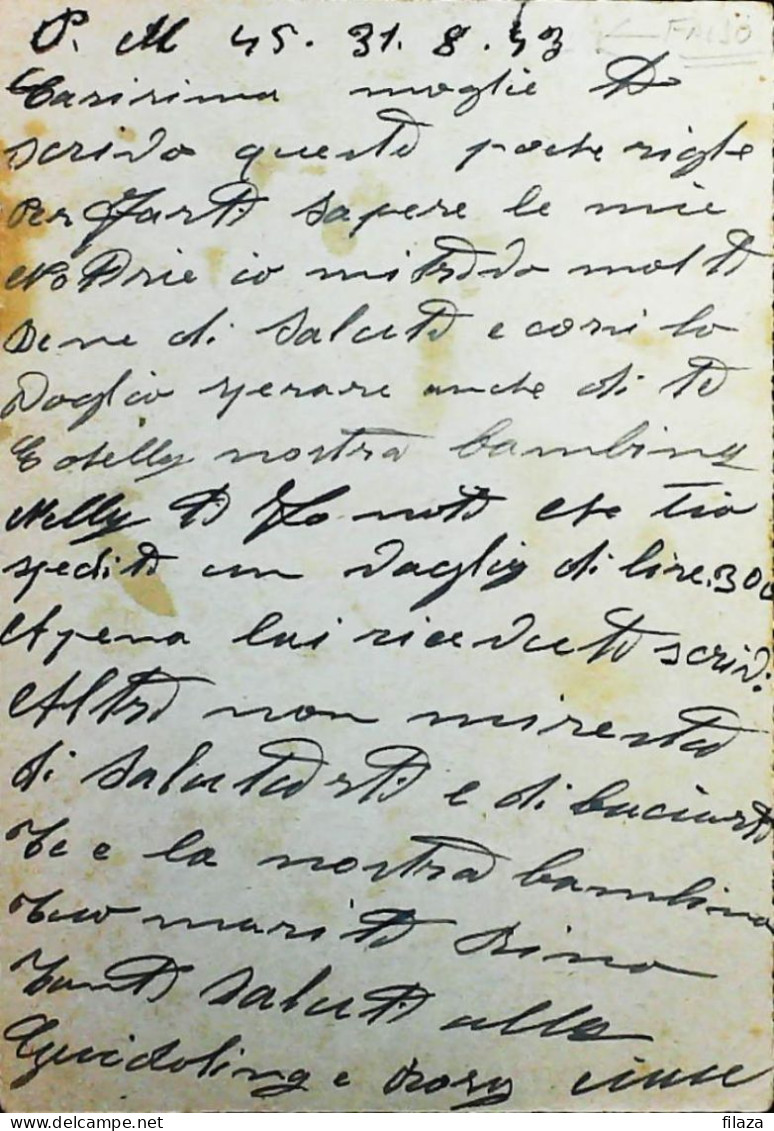 P. M 45. 31. 8. 43
FALSO
Carisima moglie ti
scrivo queste poche righe
per farti sapere le mie
notisie io mi trovo molto
bene di salute e cosi lo
voglio sperare anche di te
e nostra bambina
Nelly ti fo noto che tio
spedito un vaglia di lire. 300
Apena lai ricevuto scrivi
Altro non miresta
di salutarti e di baciarti
te e la nostra bambina
tuo marito
tanti saluti alla
Guidolina e Rosy ciau
filaza